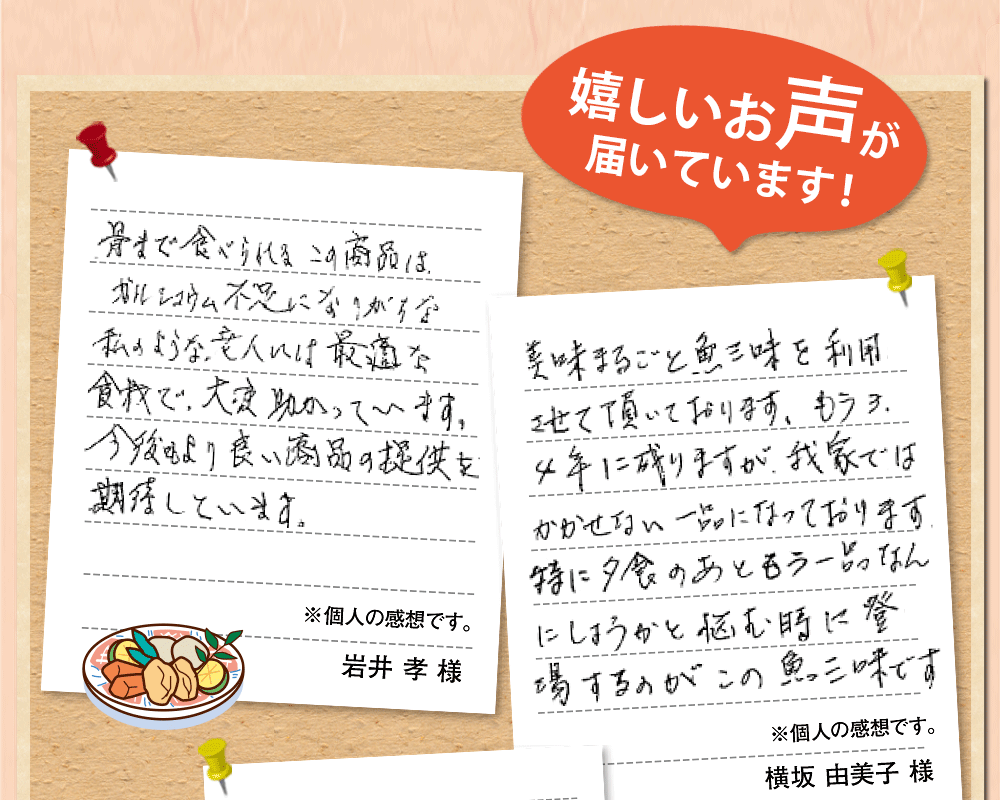 嬉しいお声が
届いています！
骨まで食べられるこの商品は
カルシュウム不足になりがちな
私のような老人には最適な
食材で、大変助かっています。
今後もより良い商品の提供を
期待しています。
※個人の感想です。
岩井 孝 様
美味まるごと魚三味を利用
させて頂いております。もう3.
4年に成りますが、我家では
かかせない一品になっております
特に夕食のあともう一品なん
にしようかと悩む時に登
場するのがこの魚三味です
※個人の感想です。
横坂 由美子 様